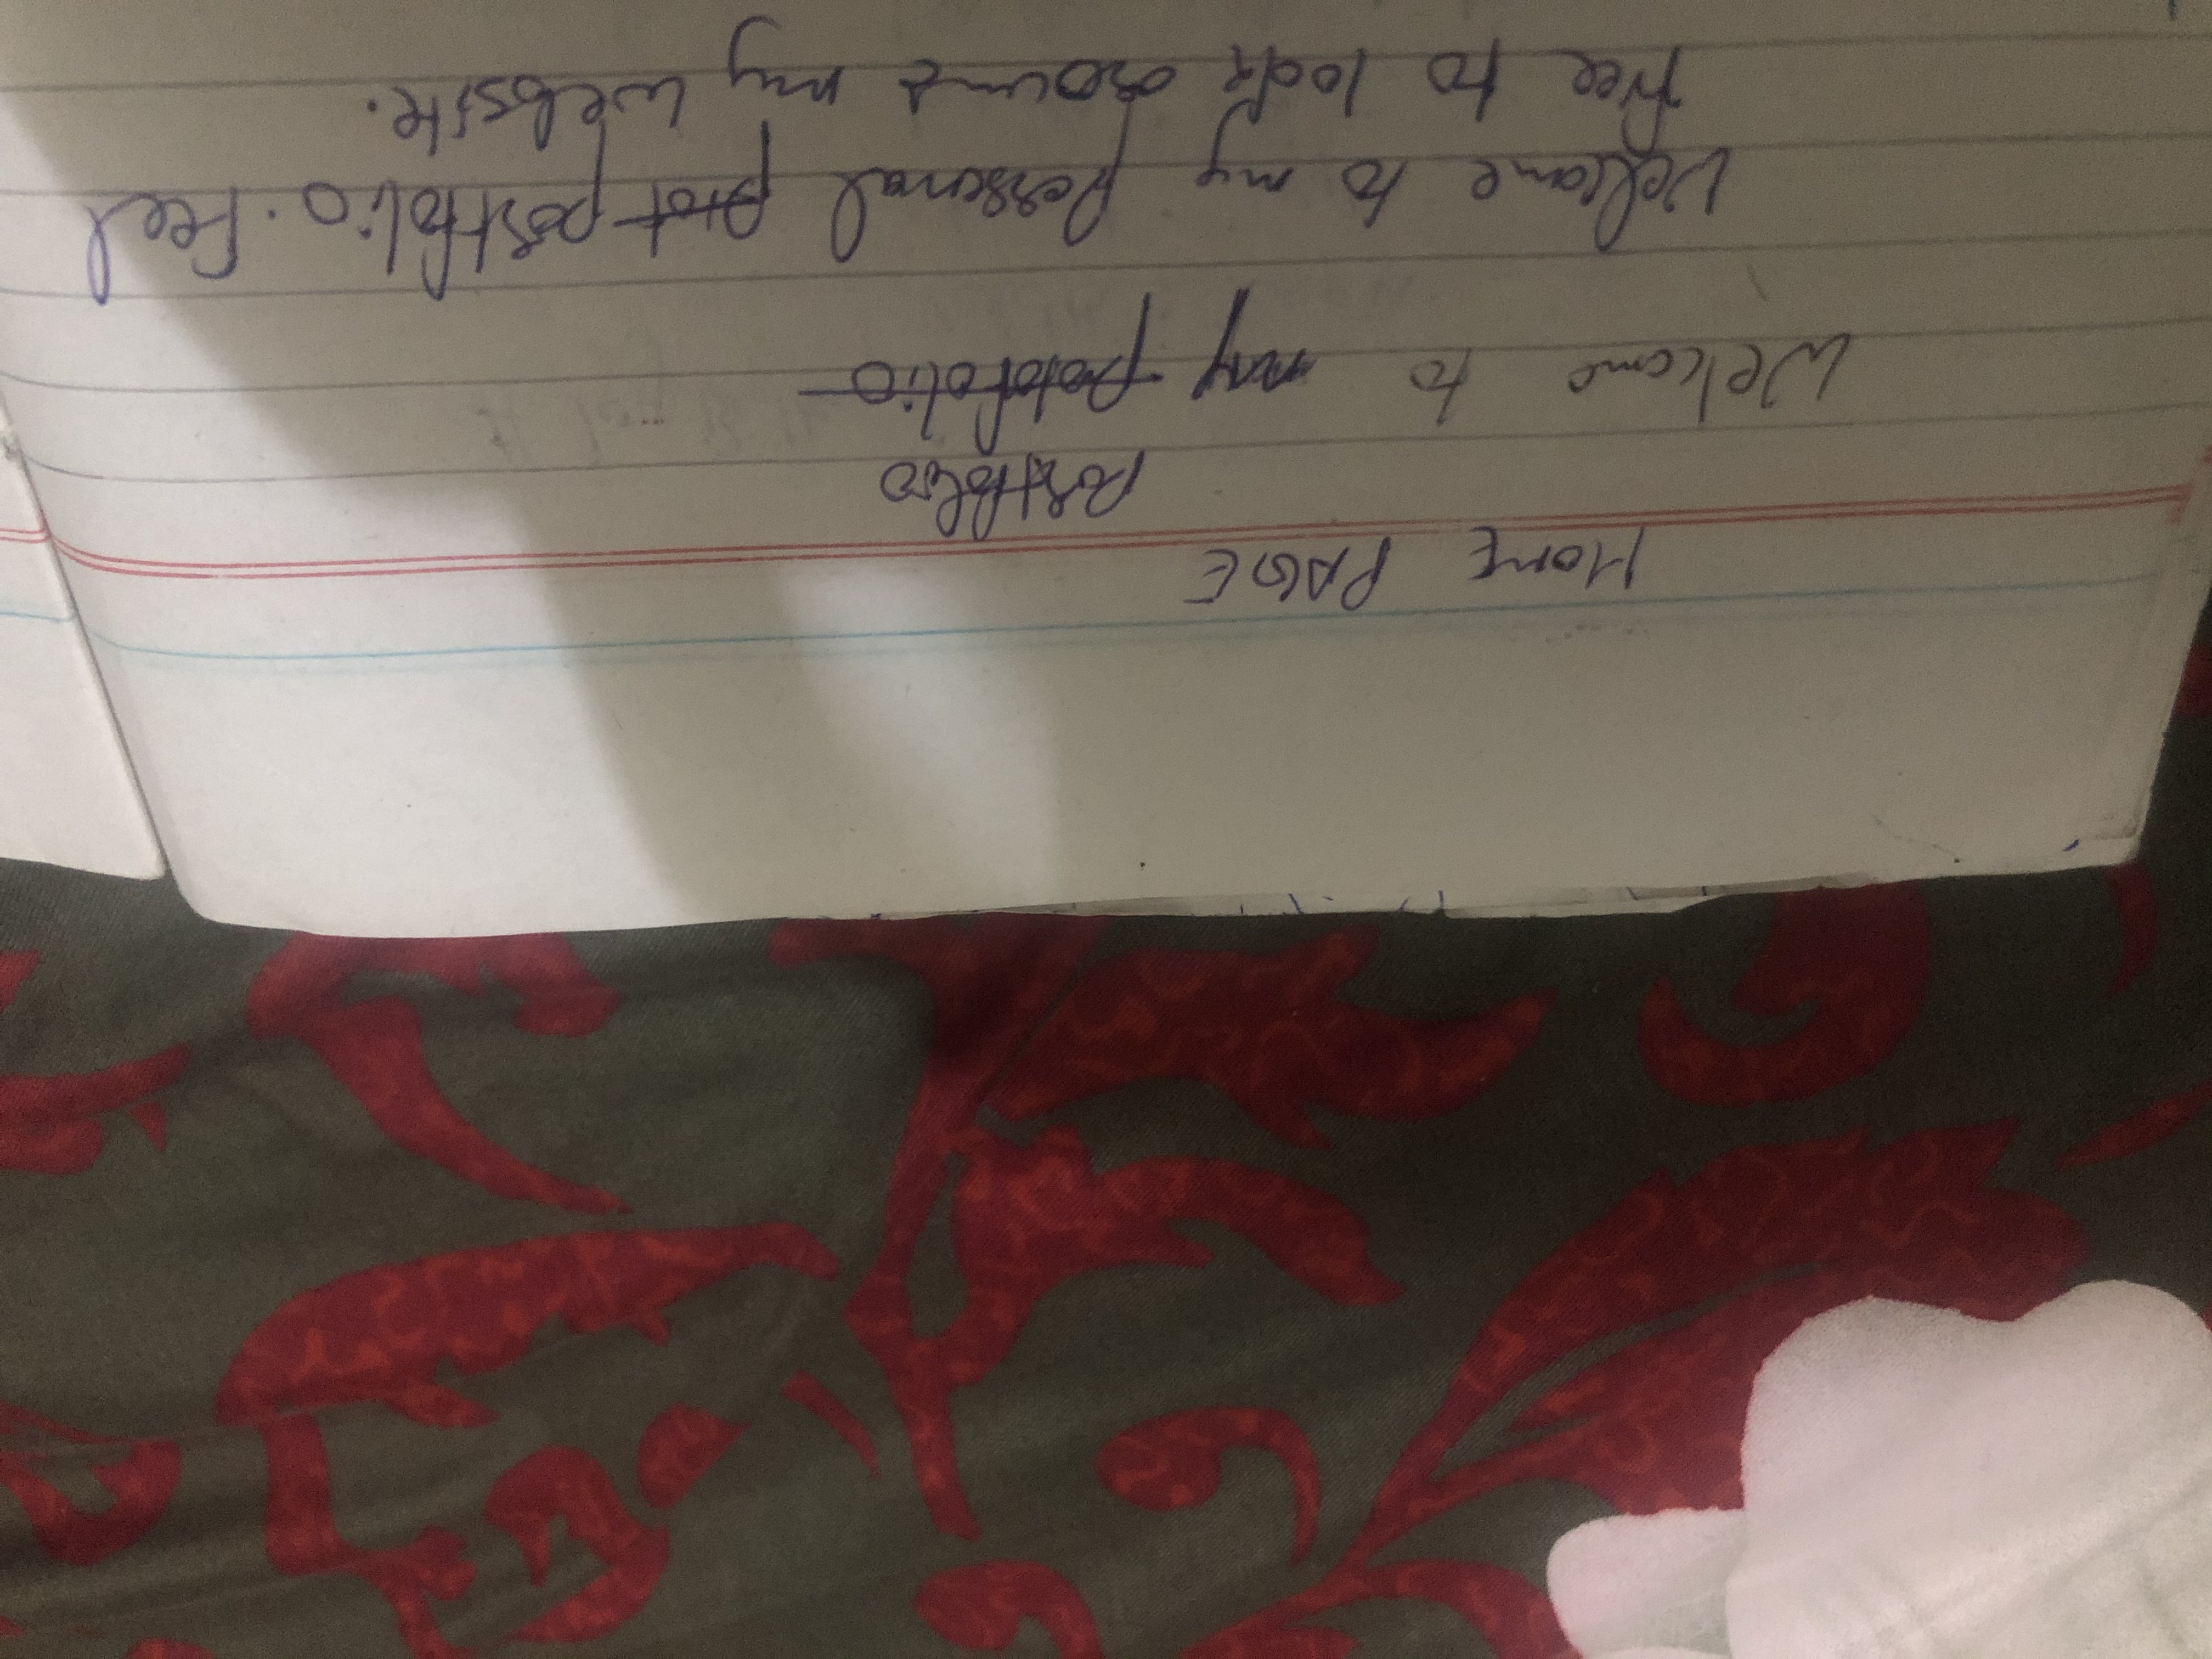 HOME PAGE
Portfolio
Welcome to my potofolio
Welcome to my Personal prot portfolio. feel
free to look around my website.